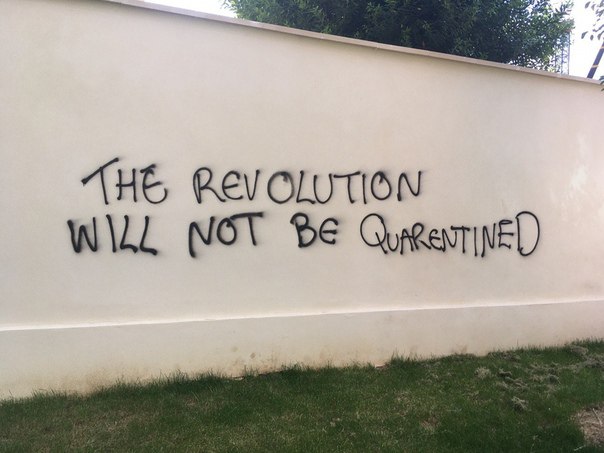 THE REVOLUTION
WILL NOT BE QUARENTINED